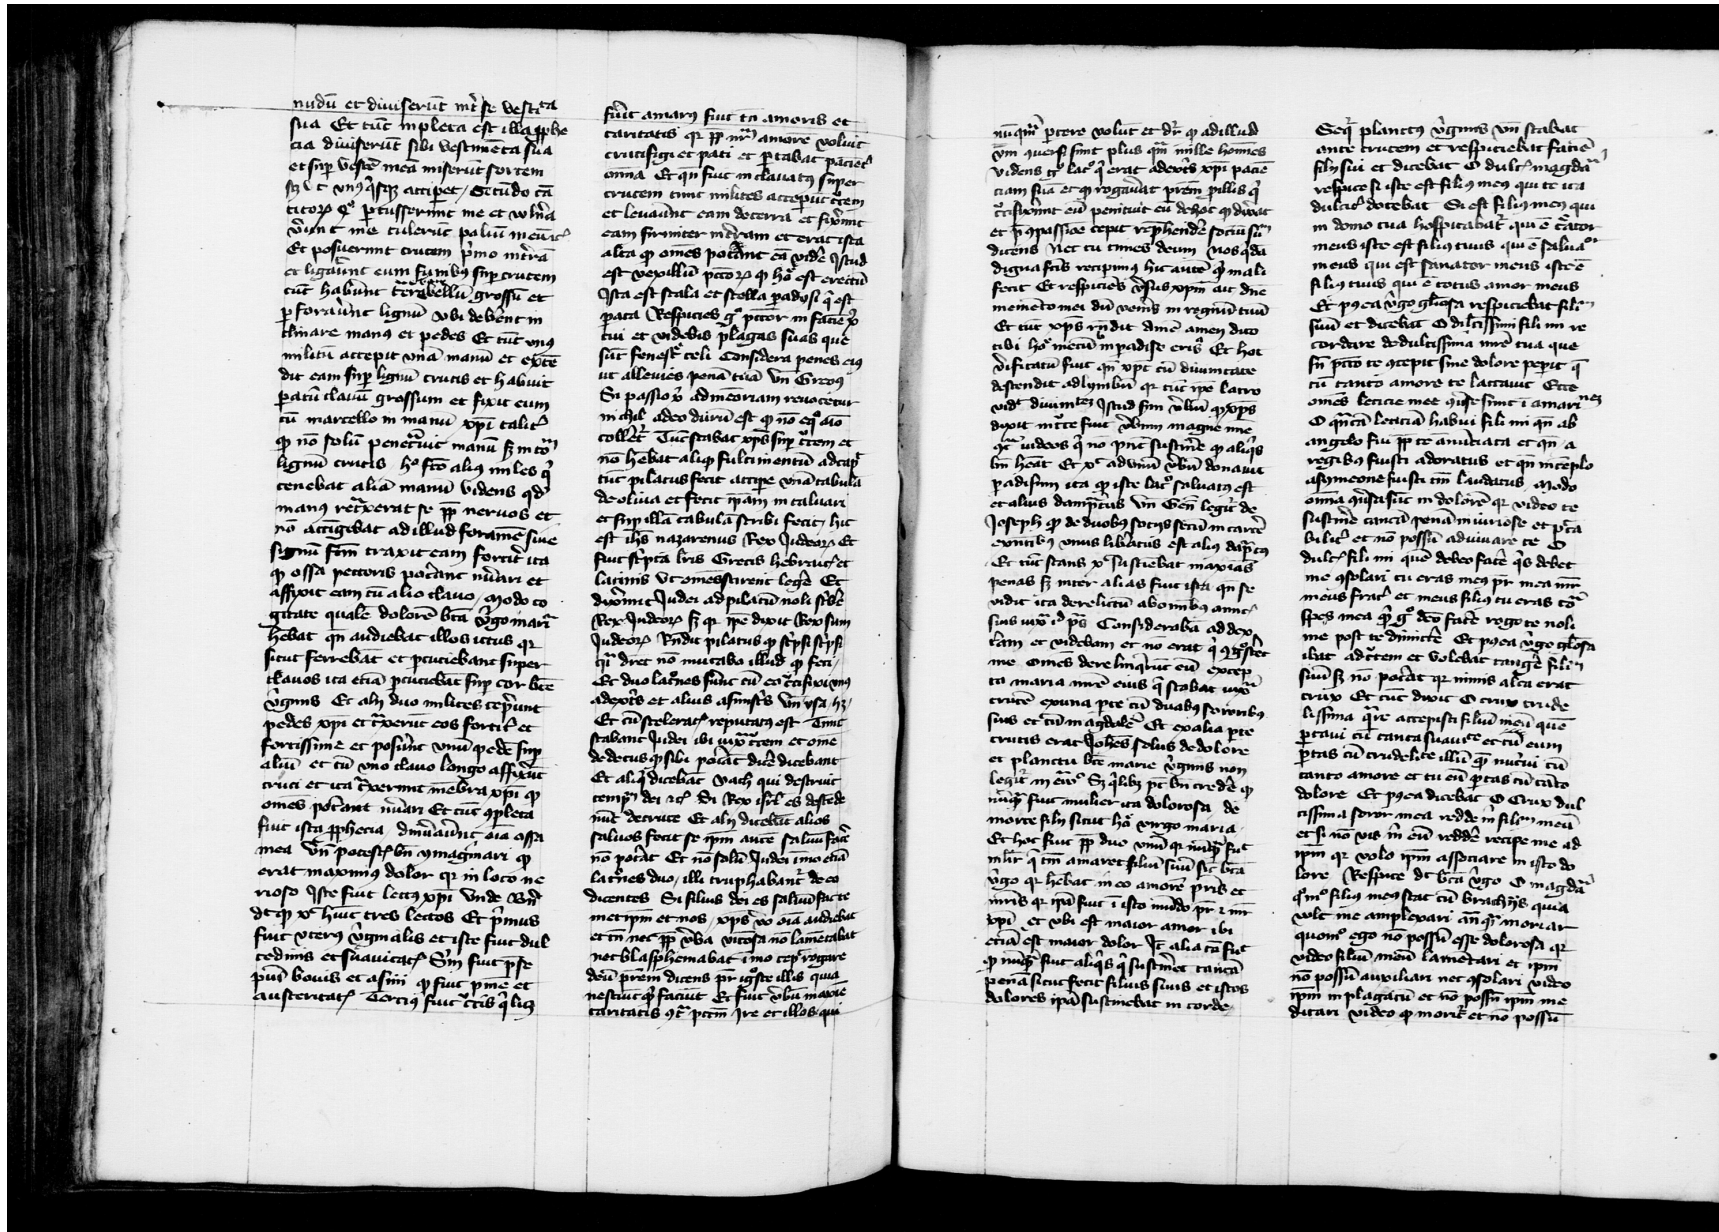 nudū et diuiserūt int̄ se vestita
sua Et tūc inpleta est illa ꝓphe
cia diuiserūt sibi vestimēta sua
et sup̄ vestē meā miserūt sortem
accip̄et Secūdo cā
ticoꝝ ꝑcusserunt me et vlnͣa
v̄unt me tulerut paliū meū
Et posuerunt crucem p̄mo in t̄rā
et ligaūnt eum funibꝰ sup̄ crucem
tūc habūnt terebellū grossū et
ꝑforaūnt lignū vbi debēnt in
clinare manus et pedes Et tūc vnꝰ
militū accepit vnā manū et extē
dit eam sup̄ lignū crucis et habuit
paratū clauū grossum et fixit eum
cū marcello in manū xp̄i talit̄
ꝙ nō solū penet̄uit manū sꝫ in totū
lignū crucis alius miles q̄
tenebat aliā manū videns qd̄
manus ret̄xerat se ꝓp̄ neruos et
nō attīgebat ad illud foramē siue
signū factū traxit eam fortit̄ ita
ꝙ ossa pectoris pot̄ant nūari et
affixit eam cū alio clauo Modo co
gitate qualē dolorē bt̄ā v̄go maria
hēbat qn̄ audiebat illos ictus qꝛ
sicut ferrebāt et ꝑcutiebant super
clauos ita etiā ꝑcutiebat sup̄ cor bt̄e
v̄ginis Et alij duo milites cep̄unt
pedes xp̄i et t̄xerūt eos fortit̄ et
fortissime et posūnt vnū pedē sup̄
aliū et cū vno clauo longo affixūt
cruci et ita t̄xerunt mēbra xp̄i ꝙ
om̄es pot̄ant nūari Et tūc ꝯpleta
fuit ista ꝓphecia dinūaūnt oīa ossa
mea vn̄ potest bn̄ ymaginari ꝙ
erat maximus dolor qꝛ in loco ne
rioso Iste fuit lectꝰ xp̄i Unde
dt ꝙ xꝰ huit tres lectos Et p̄mus
fuit vterꝰ v̄ginalis et iste fuit dul
cedinis et suauitat Sc̄d̄us fuit p̄se
piū bouis et asini ꝙ fuit et
austeritat Tercius fuit crucis q̄
fuit amarꝰ fuit tn̄ amoris et
caritatis qꝛ ꝓp̄ nr̄m amore voluit
crucifigi et pati et portabat pacient̄
omīa Et qn̄ fuit inclauatꝰ super
crucem tunc milites acceput crucem
et leuaūnt eam de terra et fixūnt
eam firmiter in t̄ram et erat ista
alta ꝙ om̄es potānt eā vidē Istud
est vexillū pctoꝝ ꝙ hō est erectū
Ista est scala et stella padysi q̄ est
parata Respicies gͦ pctor in faciē xp̄i
tui et videbis plagas suas que
sūt fenestr̄ celi Considera penes eiꝰ
ut allenies penā tuā vn̄ Grego
Si passio xp̄i ad memoriam reuocetur
nichil adeo durū est ꝙ nō eqͦ aīo
tollet̄ Tūc stabat xp̄s sup̄ crucem et
nō hēbat aliqꝫ fulcimentū ad caput
tūc pilatus fecit accip̄e vnā tabulā
de oliua et fecit ip̄am in caluari
et sup̄ illā tabulā scribi fecit hic
est ih̄s nazarenus Rex Iudeoꝝ Et
fuit scripta lr̄is Grecis hebraic̄ et
latinis Ut om̄es scirent legē Et
dixūnt Iudei ad pilatū noli scribere
Rex Iudeoꝝ sꝫ qꝛ ip̄e dixit Rex sum
Iudeoꝝ Rn̄dit pilatus ꝙ scripsi scripsi
diceret nō mutabo illud ꝙ feci
Et duo latrōnes sunt cū eo crucifixi vnus
a dext̄s et alius a sinist̄s vn̄ ysa
Et cū scelerat reputatꝰ est Tunc
stabant Iudei ibi iuxta crucem et om̄e
dedecus ꝙ sibi potāt dicē dicebant
Et aliq̄ dicebāt Uach qui destruit
templū dei Si Rex isrl̄ es descēde
nūc de cruce Et alij dicebāt alios
saluos fecit se ip̄m autē saluū facē
nō potāt Et nō solū Iudei imo etiā
latrōnes duo illi truphabant de eo
dicentes Si filius dei es saluū fac te
met ipm et nos xp̄s vō oīa audiebat
et tn̄ nec ꝓp̄ v̄ba viciosa nō lamētabat
nec blasphemabat imo cepit rogare
deū p̄rem dicens pr̄ ignosce illis quia
nesciūt qd̄ faciūt Et fuit v̄bū maxīe
caritatis ꝯͣ pctm̄ Ire et illos qui
nūqm̄ ꝑcere volūt et dr̄ ꝙ ad illud
v̄m ꝯuersi sunt plus qm̄ mille hoīnes
videns gͦ latrͦ q̄ erat a dext̄s xp̄i paciē
ciam suā et ꝙ rogauāt p̄rem ꝓ illis q̄
crucifixūnt eū penituit eū de hoc ꝙ dixāt
et p̄ ꝯpassione cepit rep̄hendē sociū suū
dicens Nec tu times deum Nos q̄dē
digna factis recipimꝰ hic autē qd̄ mali
fecit Et respicies v̄sus xp̄m ait dn̄e
memēto mei dū ven̄is in regnū tuū
Et tūc xp̄s rn̄dit amē amen dico
tibi hoͥ mecū in paradise erisͬ Et hoc
v̄ificatū fuit qn̄ xp̄c cū diuinitate
descendit ad lymbū qꝛ tūc ip̄e latro
vidͭ diuinitatem Istud fm̄ v̄bū ꝙ xp̄s
dixit in cruce fuit v̄bum magne mīe
ꝯͣ inuideos q̄ nō pn̄t sustinē ꝙ aliq̄s
bn̄ heāt Et xꝰ ad vnū v̄bū donauit
paradisum ita ꝙ iste latrͦ saluatꝰ est
et alius dampnatus vn̄ Gen̄ legit̄ de
Ioseph ꝙ de duobꝰ socijs secū in carcē
exntibꝰ vnus libatus est alius dāp̄tꝰ
Et tūc stans xꝰ sustiebat maxīas
penas sꝫ inter alias fuit ista qn̄ se
vidit ita derelictū ab oībus amic
suis vn̄ pͦs Considerabā ad dex
tām et videbam et nō erat q̄ ꝯgͦsceret
me Om̄es dereliq̄rūt eū excep
to maria mrē eius q̄ stabat iuxta
crucē ex una ꝑte cū duabꝰ sororibꝰ
suis et cū magdalē Et ex alia ꝑte
crucis erat Ioh̄es solus de dolore
et planctu bt̄e marie v̄ginis non
legit̄ in eu͞o Sꝫ qͥlibꝫ pt̄ bn̄ credē ꝙ
nūꝙ fuit mulier ita dolorosa de
morte filij sicut hͦ virgo maria
Et hoc fuit ꝓp̄ duo vnū qꝛ nūꝙ fuit
mulier q̄ tm̄ amaret filiū suū sic bt̄ā
v̄go qꝛ hēbat in eo amorē p̄ris et
mr̄is qꝛ ip̄a fuit i isto mūdo pr̄ ⁊ mr̄
xp̄i et vbi est maior amor ibi
etiā est maior dolor It̄ alia cā fuit
ꝙ nūꝙ fuit aliq̄s q̄ sustin̄et tantā
penā sicut fecit filius suus et istos
dolores ip̄a sustinebat in corde
Seqͥ planctꝰ v̄ginis vn̄ stabat
ante crucem et respiciebat faciē
filij sui et dicebat O dulc̄ magdal̄
respice si iste est filius meꝰ qui te ita
dulcit̄ docebat Si est filiꝰ meꝰ qui
in domo tua hospitabat̄ qui ē c̄ator
meus iste est filiꝰ tuus qui ē saluator
meus qui est sanator meus iste ē
filiꝰ tuus qui ē totus amor meus
Et pꝰea v̄go gl̄osa respiciebat filiū
suū et dicebat O dulcissimi fili mi re
cordare de dulcissima mrē tua que
sn̄ pctō te ꝯcepit sine dolore peperit q̄
cū tanto amore te lactauit Ecce
om̄es leticie mee ꝯuerse sunt i amaritudines
O qn̄tā leticiā habui fili mi qn̄ ab
angelo fui ꝓp̄ te anūciata et qn̄ a
regibꝰ fuisti adoratus et qn̄ in tēplo
a symeone fuisti tm̄ laudatus Modo
omīa ꝯuersa sūt in dolorē qꝛ video te
sustinē tantā penā iniuriose et p̄cā
bilit̄ et nō possū adiuuare te O
dulc̄ fili mi quē debeo facē q̄s debet
me ꝯsolari tu eras meꝰ pr̄ mea mr̄
meus frat̄ et meus filiꝰ tu eras tota
spes mea qd̄ gͦ debeo facē rogo te noli
me post te dimittē Et pꝰea v̄go gl̄osa
ibat ad crucem et volebat tangē filiū
suū sꝫ nō potāt qꝛ nimis alta erat
crux Et tūc dixit O crux crude
lissima q̄re accepisti filiū meū quē
portaui cū tanta suauitate et tu eum
portas cū crudelitate illū quē nutriui cū
tanto amore et tu eū portas cū tāto
dolore Et pꝰea dicebat O Crux dul
cissima soror mea redde m̄ filiū meū
et si nō vis m̄ eū reddē recipe me ad
ip̄m qꝛ volo ip̄m associare in isto do
lore Respice dt bt̄ā v̄go O magdal̄
qͦmͦ filius meꝰ stat cū brachijs quia
vult me amplexari an̄qm̄ moriar
quomͦ ego nō possū esse dolorosa qꝛ
video filiū meū lamētari et ip̄m
nō possū auxiliari nec ꝯsolari video
ip̄m in plagatū et nō possū ip̄m me
dicari video ꝙ morit̄ et nō possū